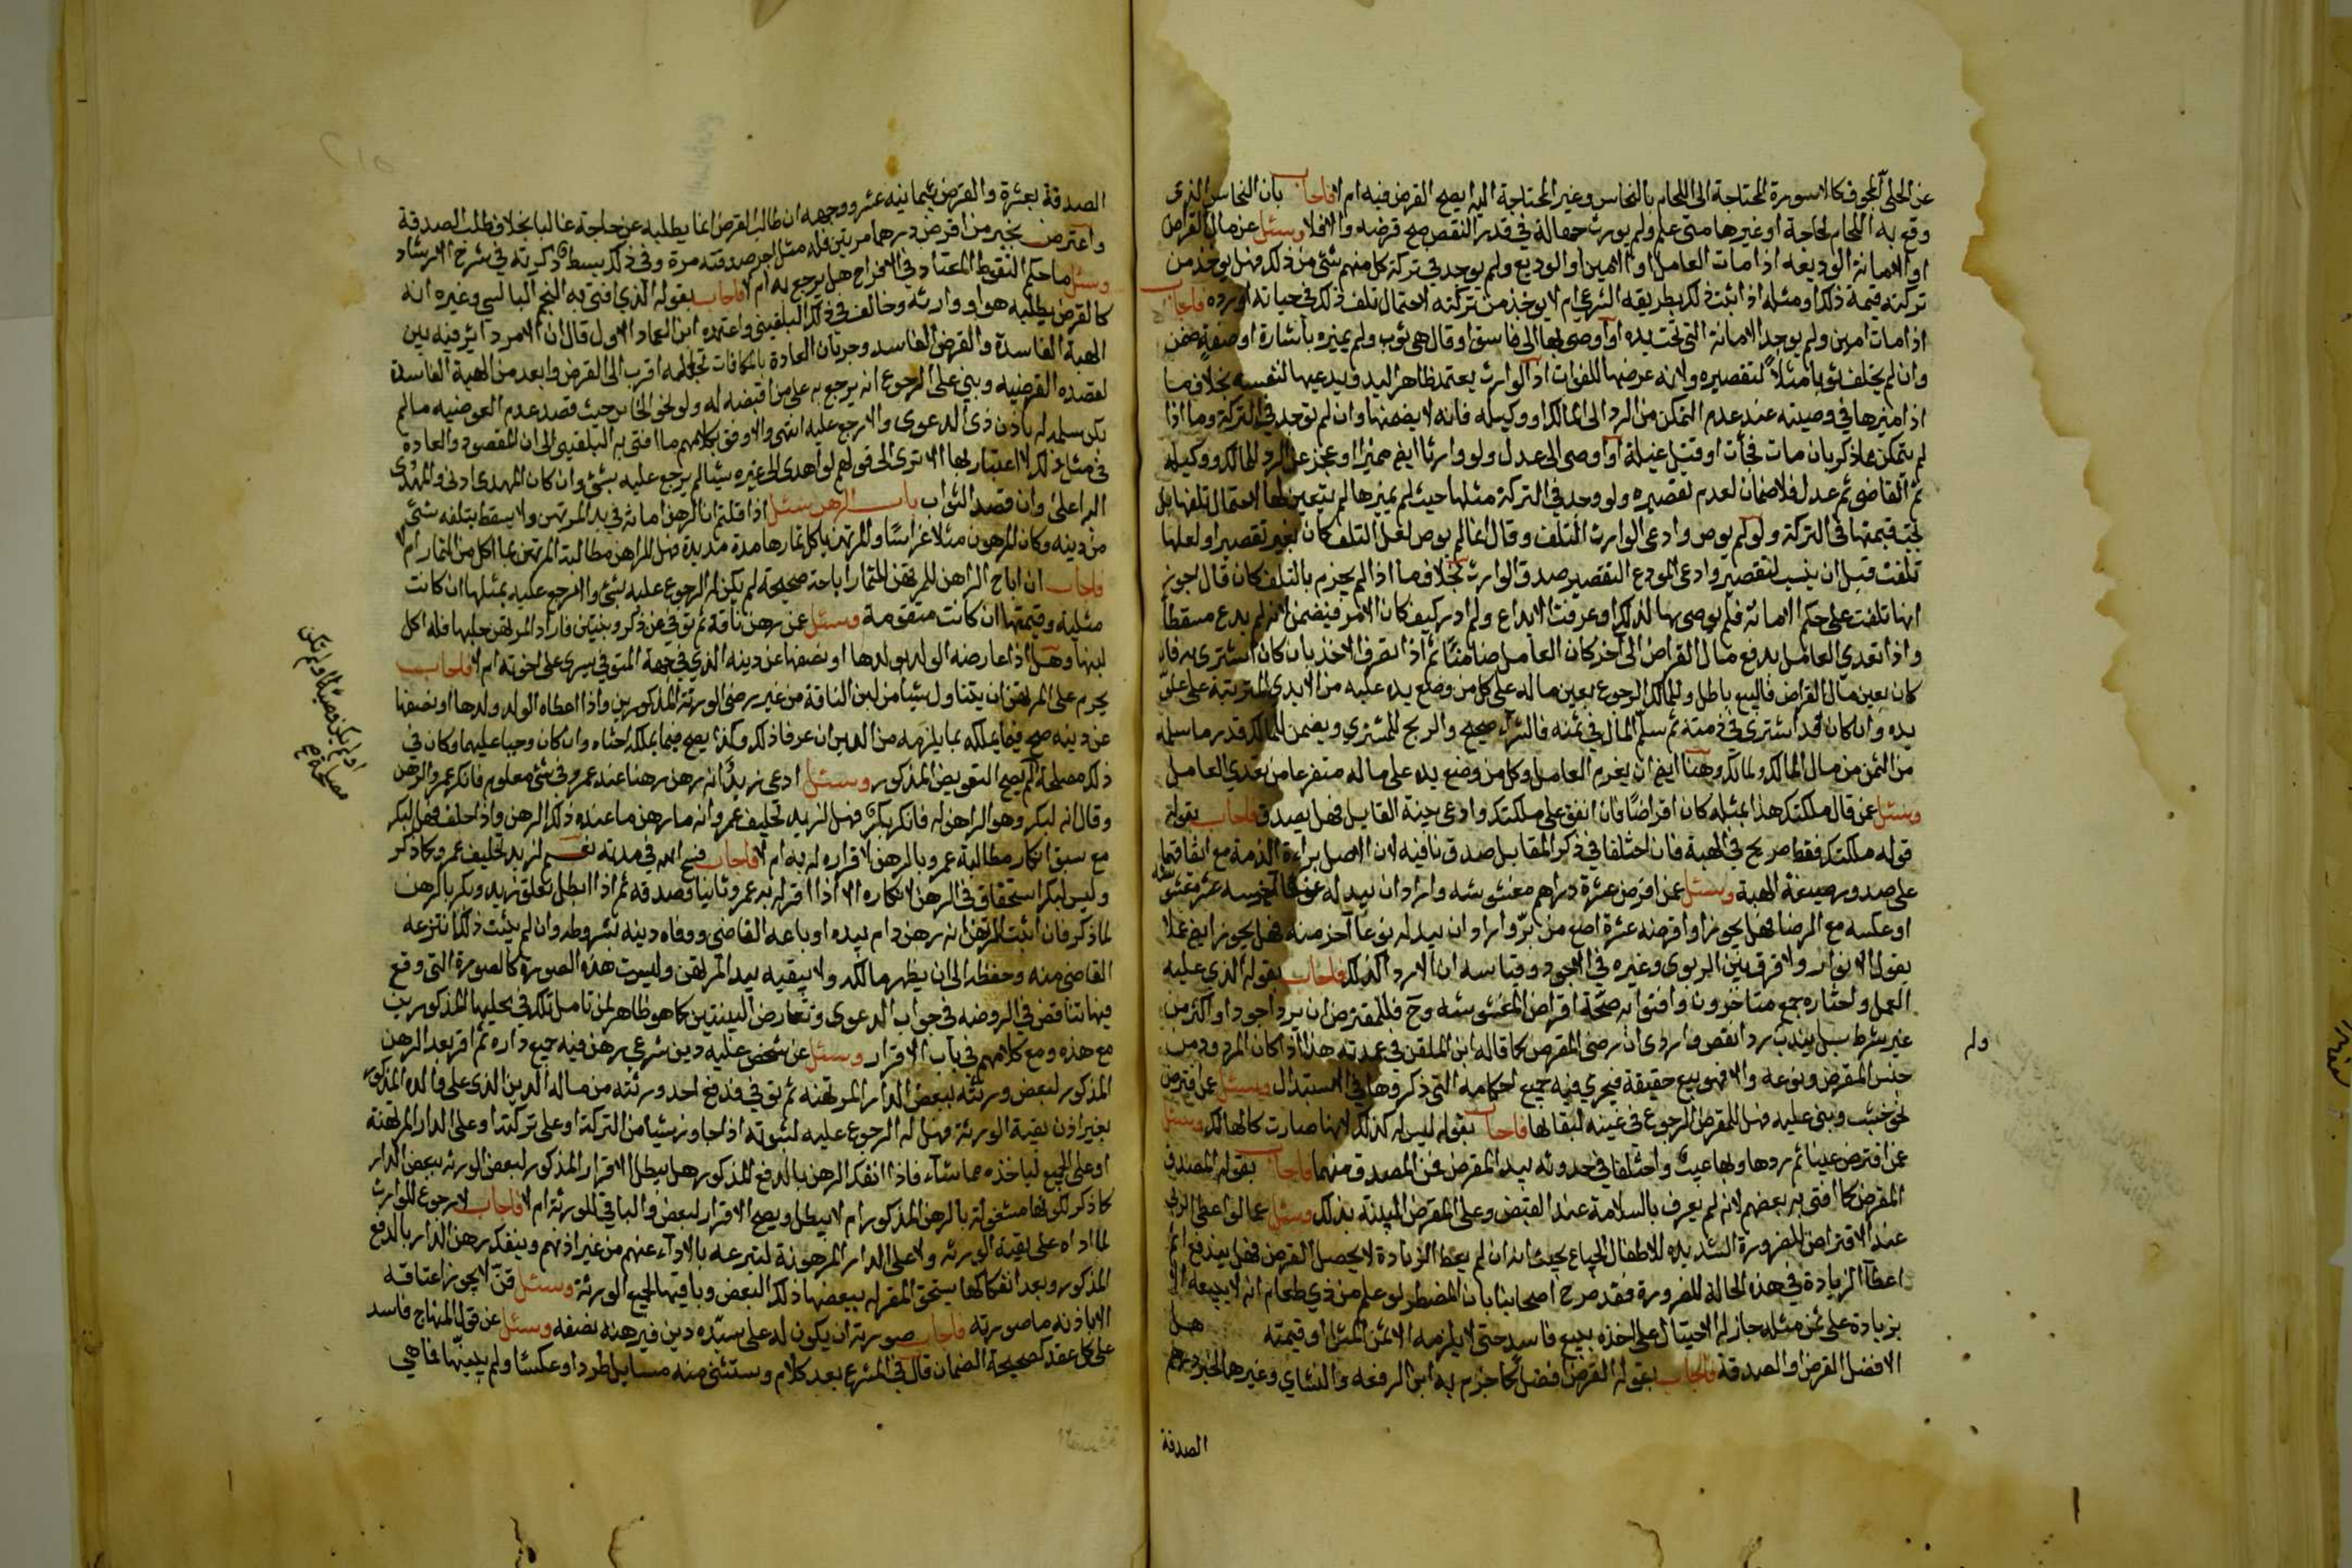 عن الحلي المجوف كالاسورة المحتاجة الى اللحام بالنحاس وغير المحتاجة اليه ايصح القرض فيه ام لا فاجاب بان النحاس الذي
وقع به اللحام لحاجة او غيرها متى علم ولم يورث جهالة في قدر النقص صح قرضه والا فلا وسئل عن مال القراض
او الامانة الوديعه اذا مات العامل او الامين او الوديع ولم يوجد في تركة كل منهم شئ من ذلك فهل يوخذ من
تركته قيمة ذلك او مثله اذا ثبت ذلك بطريقه الشرعي ام لا يوخذ من تركته لاحتمال تلف ذلك في حياته او رده فاجاب
اذا مات امين ولم يوجد الامانة التي تحت يده او اوصى بها الى فاسق او قال هي ثوب ولم يميزه باشارة او صفة ضمن
وان لم يخلف ثوبا مثلا لتقصيره ولانه عرضها للفوات اذ الوارث يعتمد ظاهر اليد ويدعيها لنفسه بخلاف ما
اذا ميزها في وصيته عند عدم التمكن من الرد الى المالك او وكيله فانه لا يضمنها وان لم توجد في التركة وما اذا
لم يتمكن مما ذكر بان مات فجأت او قتل غيلة او اوصى الى عدل ولو وارثا ايضا مميزا او عجز عن الرد للمالك ووكيله
ثم القاضي ثم عدل فلا ضمان لعدم تقصيره ولو وجد في التركة مثلها حيث لم يميزها لم يتعين لها لاحتمال تلفها بل
تجب قيمتها في التركة ولو لم يوص وادعى الوارث التلف وقال انما لم يوص لعل التلف كان بغير تقصير او لعلها
تلفت قبل ان ينسب لتقصير وادعى المودع التقصير صدق الوارث بخلاف ما اذا لم يجزم بالتلف كان قال اجوز
انها تلفت على حكم الامانه فلم يوصى بها لذلك او عرفت الايداع ولم ادر كيف كان الامر فيضمن لانه لم يدع مسقطا
واذا تعدي العامل بدفع مال القراض الى آخر كان العامل ضامنا ثم اذا تصرف الاخذ بان كان اشترى به فان
كان بعين مال القراض فالبيع باطل وللمالك الرجوع بعين ماله على كل من وضع يده عليه من الايدي المترتبة على
يده وان كان قد اشترى في ذمته ثم سلم المال في ثمنه فالشراء صحيح والربح للمشتري ويضمن للمالك قدر ما سلمه
من الثمن من مال المالك ولمالكه هنا ايضا ان يغرم العامل وكل من وضع يده على ماله متفرعا من تعدي العامل
وسئل عمن قال ملكتك هذا بمثله كان اقراضا فان اتفق على ملكتك وادعى حينة القابل فهل يصدق فاجاب بقوله
قوله ملكتك فقط صريح في الهبة فان اختلفا في ذكر المقابل صدق نافيه لان الاصل براءة الذمة مع اتفاقهما
على صدور صيغة الهبة وسئل عمن اقرض عشرة دراهم مغشوشه واراد ان يبدله عوضها خمسه عشر
او عكسه مع الرضا فهل يجوز او اقرضه عشرة اصع من بر واراد ان يبدله نوعا آخر منه فهل يجوز ايضا عملا
بقول الانوار ولا فرق بين الربوي وغيره في الاجود وقياسه ان الاردا كذلك فاجاب بقوله الذي عليه
العمل واختاره جمع متاخرون وافتوا به صحة اقراض المغشوشه وح فللمقترض ان يرد اجود او اكثر من
غير شرط بل يندب رد انقص واردى ان رضى المقرض كما قاله ابن الملقن في عمدته هذا اذا كان المردود من
جنس المقرض ونوعه والا فهو بيع حقيقة فيجري فيه جميع احكامه التي ذكروها في الاستبدال وسئل عمن اقترض
نحو خشب وبنى عليه فهل للمقرض الرجوع في عينه لبقائها فاجاب بقوله ليس له ذلك لانها صارت كالهالك وسئل
عمن اقترض عينا ثم ردها وبها عيب واختلفا في حدوثه بيد المقرض فمن المصدق منهما فاجاب بقوله المصدق
المقرض كما افتى به بعضهم لانه لم يعرف بالسلامة عند القبض وعلى المقرض البينة بذلك وسئل عما لو اعطى الربا
عند الاقتراض للضرورة الشديده للاطفال الجياع بحيث انه ان لم يعط الزيادة لا يحصل القرض فهل يندفع اثم
اعطآ الزيادة في هذه الحالة للضرورة فقد صرح اصحابنا بان المضطر لو علم من ذي طعام انه لا يبيعه الا
بزيادة على ثمن مثله جاز له الاحتيال على اخذه ببيع فاسد حتى لا يلزمه الا ثمن المثل او قيمته هل
الافضل القرض او الصدقة فاجاب بقوله القرض افضل كما جزم به ابن الرفعه والنشاي وغيرهما لخبر درهم
الصدقة
ولم
الصدقة بعشرة والقرض بثمانيه عشر ووجهه ان طالب القرض انما يطلبه عن حاجة غالبا بخلاف طلب الصدقة
واعترض بخبر من اقرض درهما مرتين فله مثل اجر صدقته مرة وفي ذلك بسط ذكرته في شرح الارشاد
وسئل ما حكم النقوط المعتاد في الافراح هل يرجع به ام لا فاجاب بقوله الذي افتى به النجم البالسي وغيره انه
كالقرض يطلبه هو او وارثه وخالف في ذلك البلقيني واعتمده ابن العماد الاول قال ان الامر دائر فيه بين
الهبة الفاسدة والقرض الفاسد وجريان العادة بالمكافات تجعله اقرب الى القرض وابعد من الهبة الفاسدة
لقصده القرضيه وبنى على الرجوع انه يرجع به على من اقبضه له ولو نحو الخاتن حيث قصد عدم العوضيه ما لم
يكن سلمه له باذن ذى الدعوى والا رجع عليه انتهى والاوفق بكلامهم ما افتى به البلقيني الى ان المقصود والعادة
في مثل ذلك لا اعتبار بها الا ترى الى قولهم لو اهدى الى غيره شيا لم يرجع عليه بشئ وان كان المهدى ادنى والمهدى
اليه اعلى وان قصد الثواب باب الرهن سئل اذا قلتم ان الرهن امانه في يد المرتهن ولا يسقط بتلفه شئ
من دينه وكان المرهون مثلا غراسا والمرتهن ياكل ثمارها مدة مديدة فهل للراهن مطالبة المرتهن بما اكل من الثمار ام لا
فاجاب ان اباح الراهن للمرتهن الثمار اباحة صحيحة لم يكن له الرجوع عليه بشئ والا فرجع عليه بمثلها ان كانت
مثلية وقيمتها ان كانت متقومة وسئل عن رهن ناقة ثم توفي عن ذكر وبنتين فاراد المرتهن حلبها فله اكل
لبنها وهل اذا عارضه الولد بولدها او نصفها عن دينه الذي في جهة المتوفي يسرى على اخوته ام لا فاجاب
يحرم على المرتهن ان يتناول شيا من لبن الناقة من غير رضى الورثة المذكورين واذا اعطاه الولد ولدها او نصفها
عن دينه صح فيما يملكه بما يلزمه من الدين ان عرفا ذلك وكذا يصح فيما يملكه اختاه وان كان وصيا عليهما وكان في
ذلك مصلحة لم يصح التعويض المذكور وسئل ادعى زيد انه رهن رهنا عند عمرو في شئ معلوم فانكر عمرو الرهن
وقال انه لبكر وهو الراهن له فانكر بكر فهل لزيد تحليف عمرو انه ما رهن ما عنده ذلك الرهن واذا حلف فهل لبكر
مع سبق انكار مطالبة عمرو بالرهن لاقراره له به ام لا فاجاب فسح الله في مدته نعم لزيد تحليف عمرو كما ذكر
وليس لبكر استحقاق في الرهن لانكاره الا اذا اقر له به عمرو ثانيا وصدقه ثم اذا ابطل تعلق زيد وبكر بالرهن
لما ذكر فان اثبت المرتهن انه رهن دام بيده او باعه القاضي ووفاه دينه بشروطه وان لم يثبت ذلك انتزعه
القاضي منه وحفظه الى ان يظهر مالكه ولا يبقيه بيد المرتهن وليست هذه الصورة كالصورة التي وقع
فيها تناقض في الروضه في جواب الدعوى وتعارض البينتين كما هو ظاهر لمن تامل تلك في محليها المذكورين
مع هذه ومع كلامهم في باب الاقرار وسئل عن شخص عليه دين شرعي رهن فيه جميع داره ثم اقر بعد الرهن
المذكور لبعض ورثته ببعض الدار المرتهنه ثم توفي فدفع احد ورثته من ماله الدين الذي على والده المذكور
بغير اذن بقية الورثة فهل له الرجوع عليه لثبوته اذا جاوز شيا من التركة او على تركتة او على الدار المرتهنة
او على الجميع لياخذه مما شآء فاذا انفك الرهن بالدفع المذكور هل يبطل الاقرار المذكور لبعض الورثه ببعض الدار
كما ذكر لكونها مشغولة بالرهن المذكور ام لا يبطل ويصح الاقرار لبعض والباقي للورثة ام لا فاجاب لا رجوع للوارث
لما اداه على بقية الورثه ولا على الدار المرهونة لتبرعه بالادآء عنهم من غير اذنهم وينفك رهن الدار بالدفع
المذكور وبعد انفكاكها يستحق المقر له ببعضها ذلك البعض وباقيها لجميع الورثة وسئل قن لا يجوز اعتاقه
الا باذنه ما صورته فاجاب صورته ان يكون له على سيده دين فيرهنه نصفه وسئل عن قول المنهاج فاسد
على كل عقد كصحيحه الضمان قال في الشرح بعد كلام ويستثنى منه مسايل طردا وعكسا ولم يبينها فما هي
او لم يكن وصيا او لم تكن
مصلحة صح